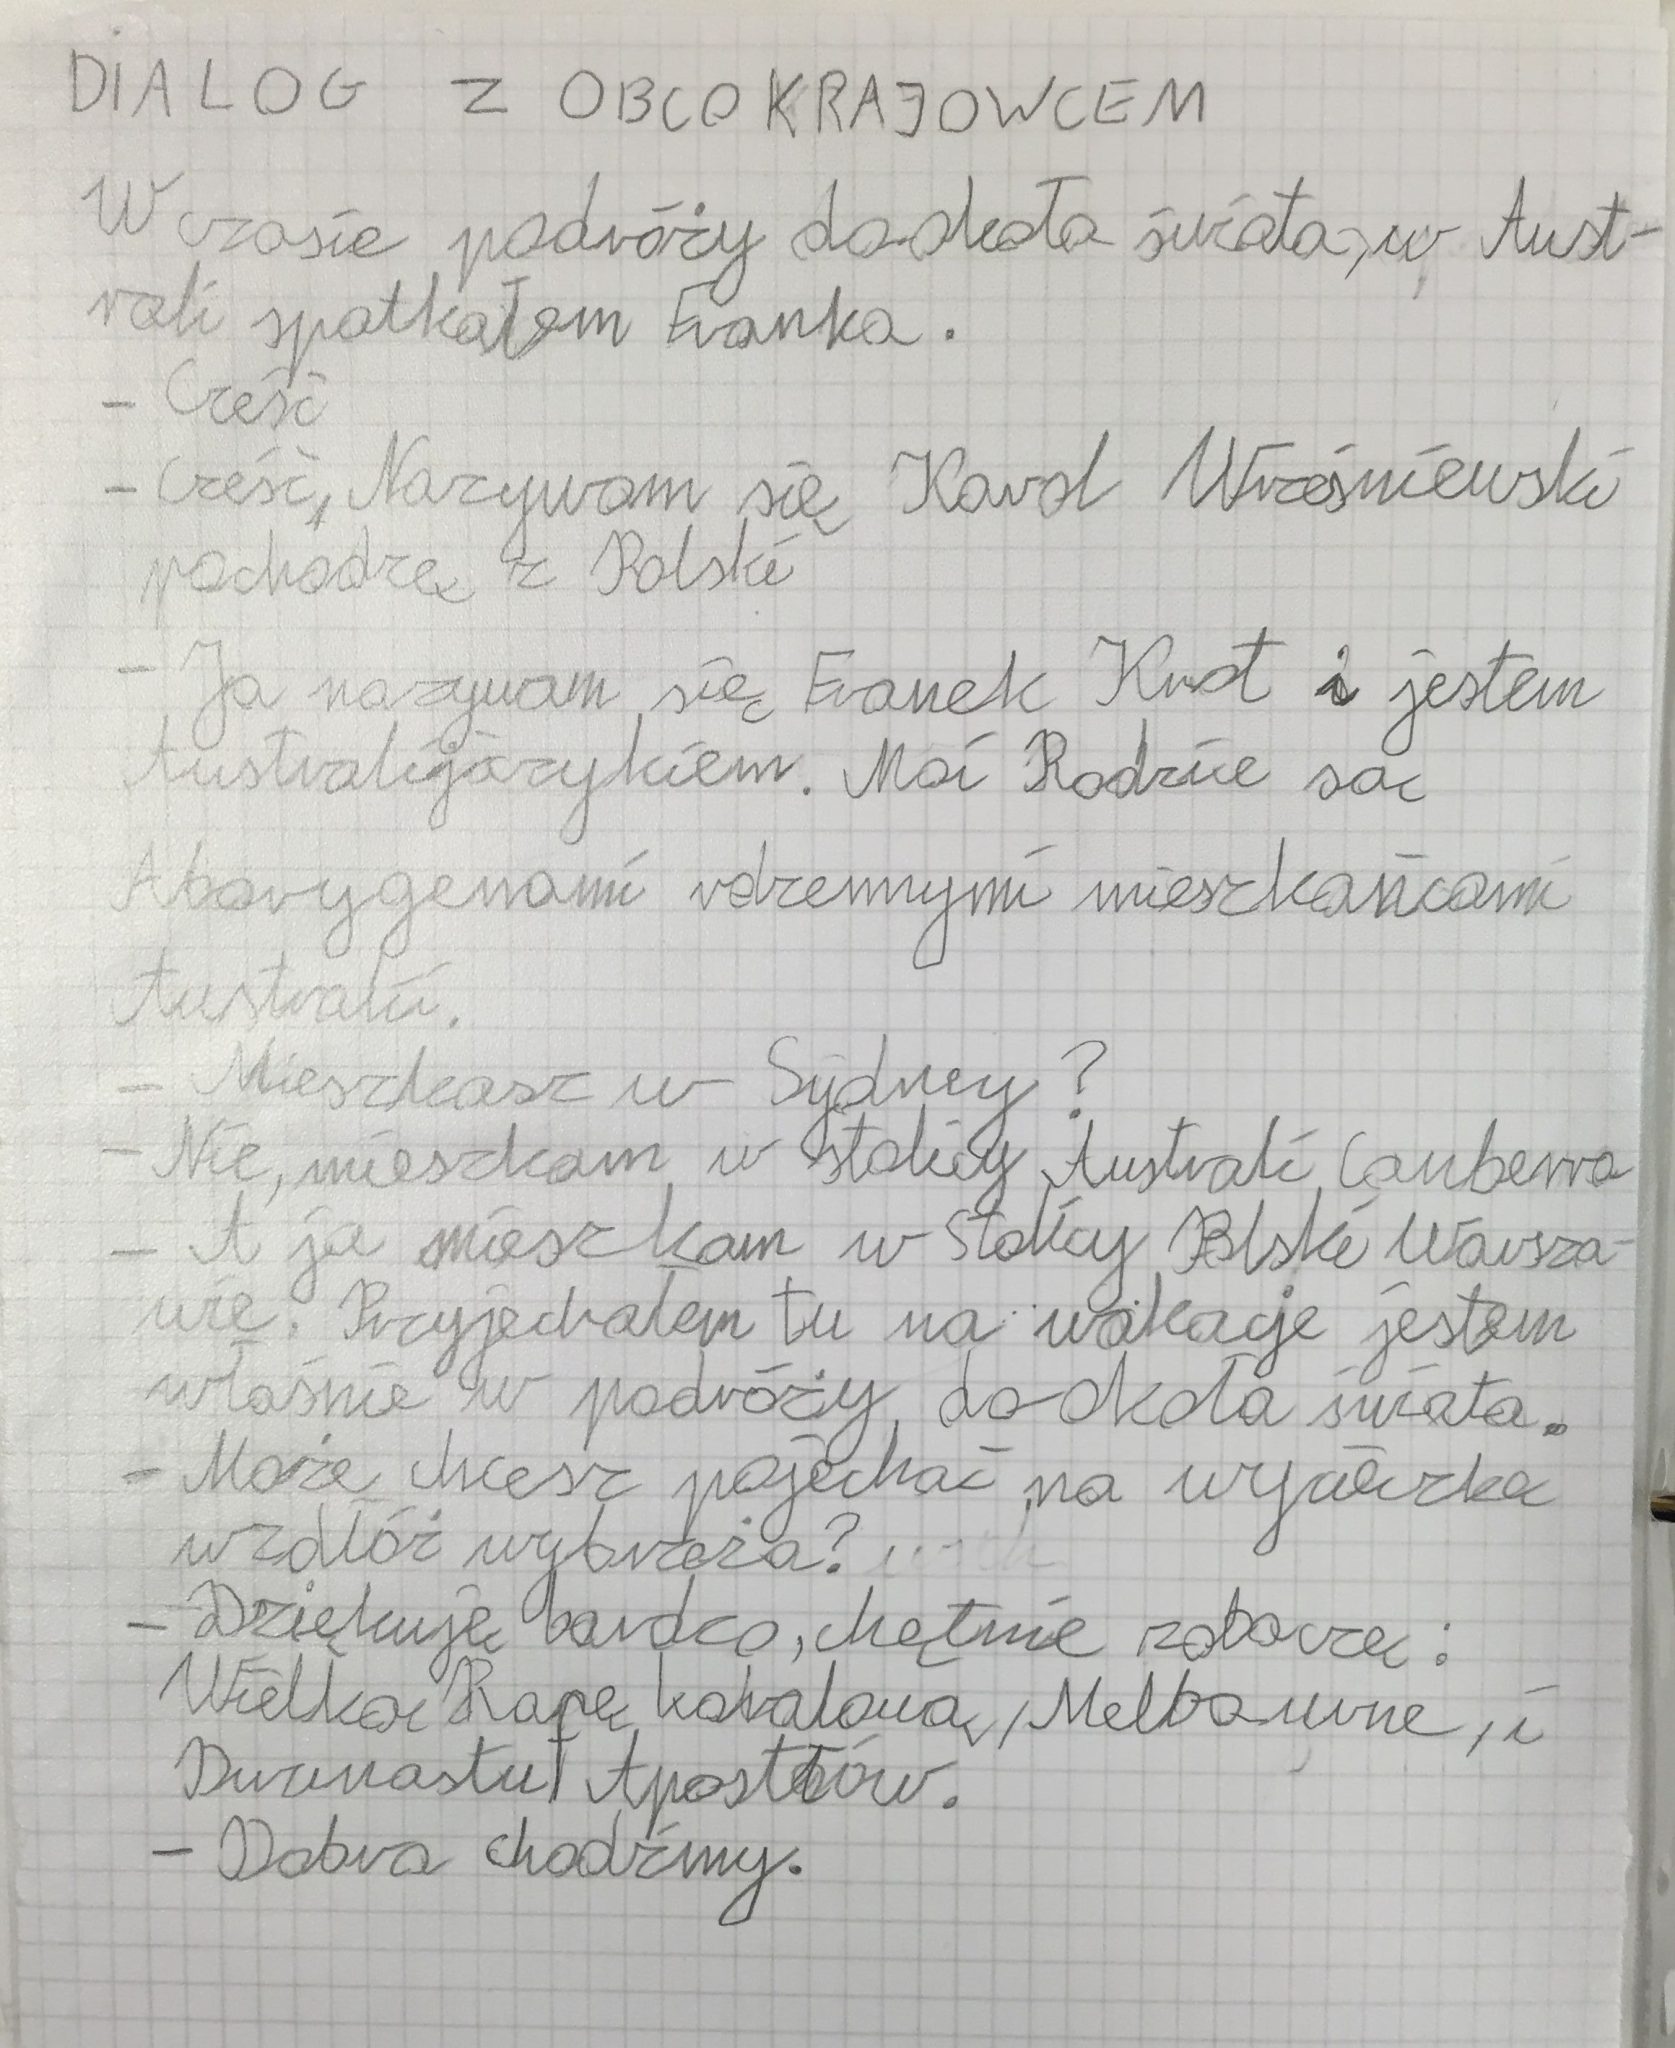 DIALOG Z OBCOKRAJOWCEM
W czasie podróży do okoła świata, w Aust-
rali spotkałem Franka.
- Cześć
- Cześć, Nazywam się Karol Wrześniewski
pochodzę z Polski
- Ja nazywam się Franek Knot i jestem
Australijczykiem. Moi Rodzice są
Aborygenami rdzennymi mieszkańcami
Australii.
- Mieszkasz w Sydney?
- Nie, mieszkam w stolicy Australi Canberra
- A ja mieszkam w stolicy Polski Warsza-
wie. Przyjechałem tu na wakacje jestem
właśnie w podróży do okoła świata.
- Może chcesz pojechać na wycieczkę
wzdłóż wybrzeża?
- Dziękuję bardzo, chętnie zobaczę:
Wielką Rafę koralową, Melbourne, i
Dwunastu Apostołów.
- Dobra chodźmy.